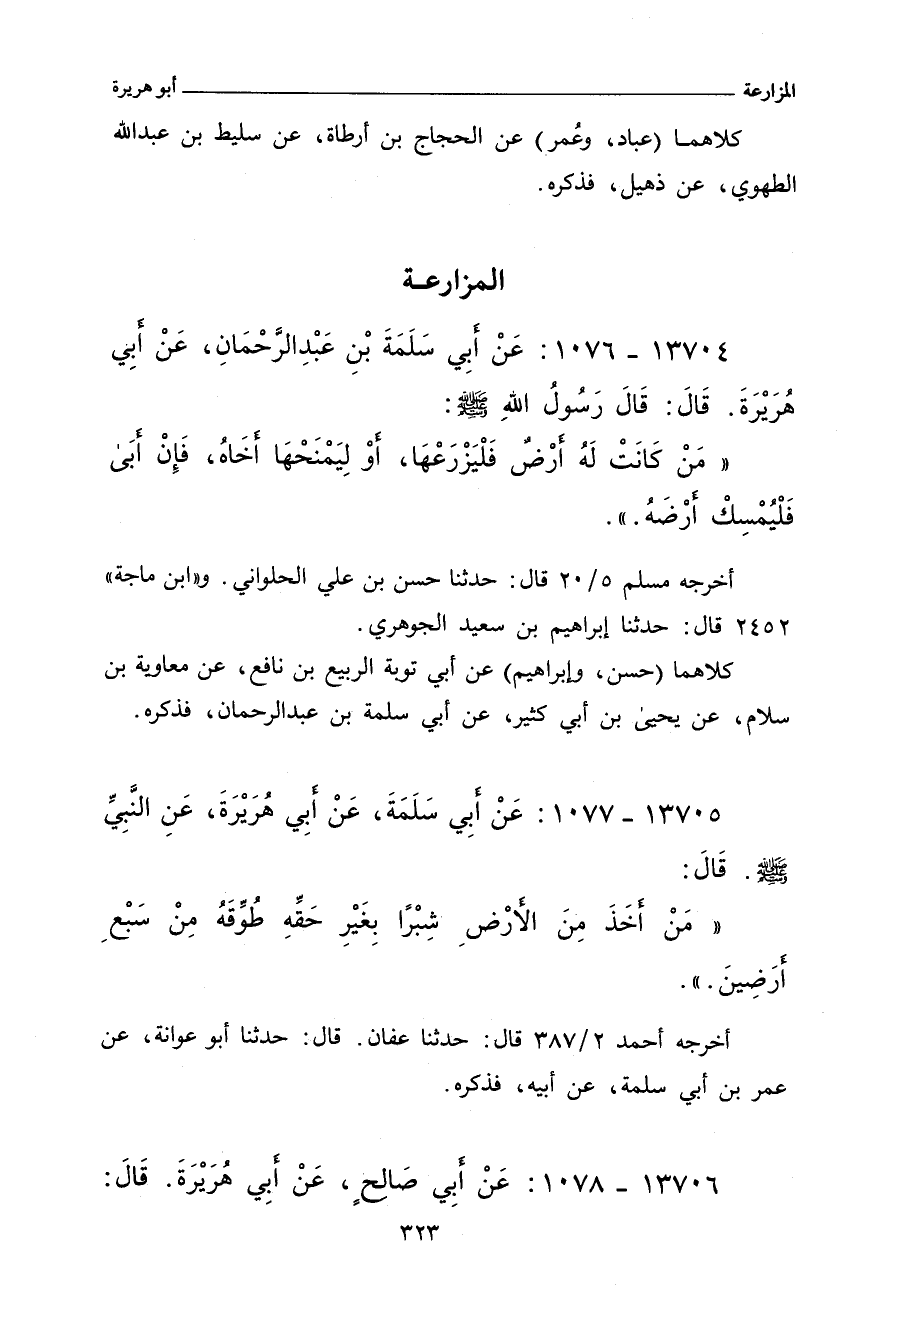 المزارعة ــــــــ أبو هريرة
كلاهمـا (عباد، وعُمر) عن الحجاج بن أرطاة، عن سليط بن عبدالله
الطهوي، عن ذهيل، فذكره.
المزارعـة
١٣٧٠٤ ـ ١٠٧٦: عَنْ أَبِي سَلَمَةَ بْنِ عَبْدِالرَّحْمَانِ، عَنْ أَبِي
هُرَيْرَةَ. قَالَ: قَالَ رَسُولُ اللهِ ﷺ:
« مَنْ كَانَتْ لَهُ أَرْضٌ فَلْيَزْرَعْهَا، أَوْ لِيَمْنَحْهَا أَخَاهُ، فَإِنْ أَبَىٰ
فَلْيُمْسِكْ أَرْضَهُ.».
أخرجه مسلم ٢٠/٥ قال: حدثنا حسن بن علي الحلواني. و«ابن ماجة»
٢٤٥٢ قال: حدثنا إبراهيم بن سعيد الجوهري.
كلاهما (حسن، وإبراهيم) عن أبي توبة الربيع بن نافع، عن معاوية بن
سلام، عن يحيىٰ بن أبي كثير، عن أبي سلمة بن عبدالرحمان، فذكره.
١٣٧٠٥ ـ ١٠٧٧: عَنْ أَبِي سَلَمَةَ، عَنْ أَبِي هُرَيْرَةَ، عَنِ النَّبِيِّ
ﷺ. قَالَ:
« مَنْ أَخَذَ مِنَ الأَرْضِ شِبْرًا بِغَيْرِ حَقِّهِ طُوِّقَهُ مِنْ سَبْعِ
أَرَضِينَ.».
أخرجه أحمد ٣٨٧/٢ قال: حدثنا عفان. قال: حدثنا أبو عوانة، عن
عمر بن أبي سلمة، عن أبيه، فذكره.
١٣٧٠٦ ـ ١٠٧٨: عَنْ أَبِي صَالِحٍ، عَنْ أَبِي هُرَيْرَةَ. قَالَ:
٣٢٣